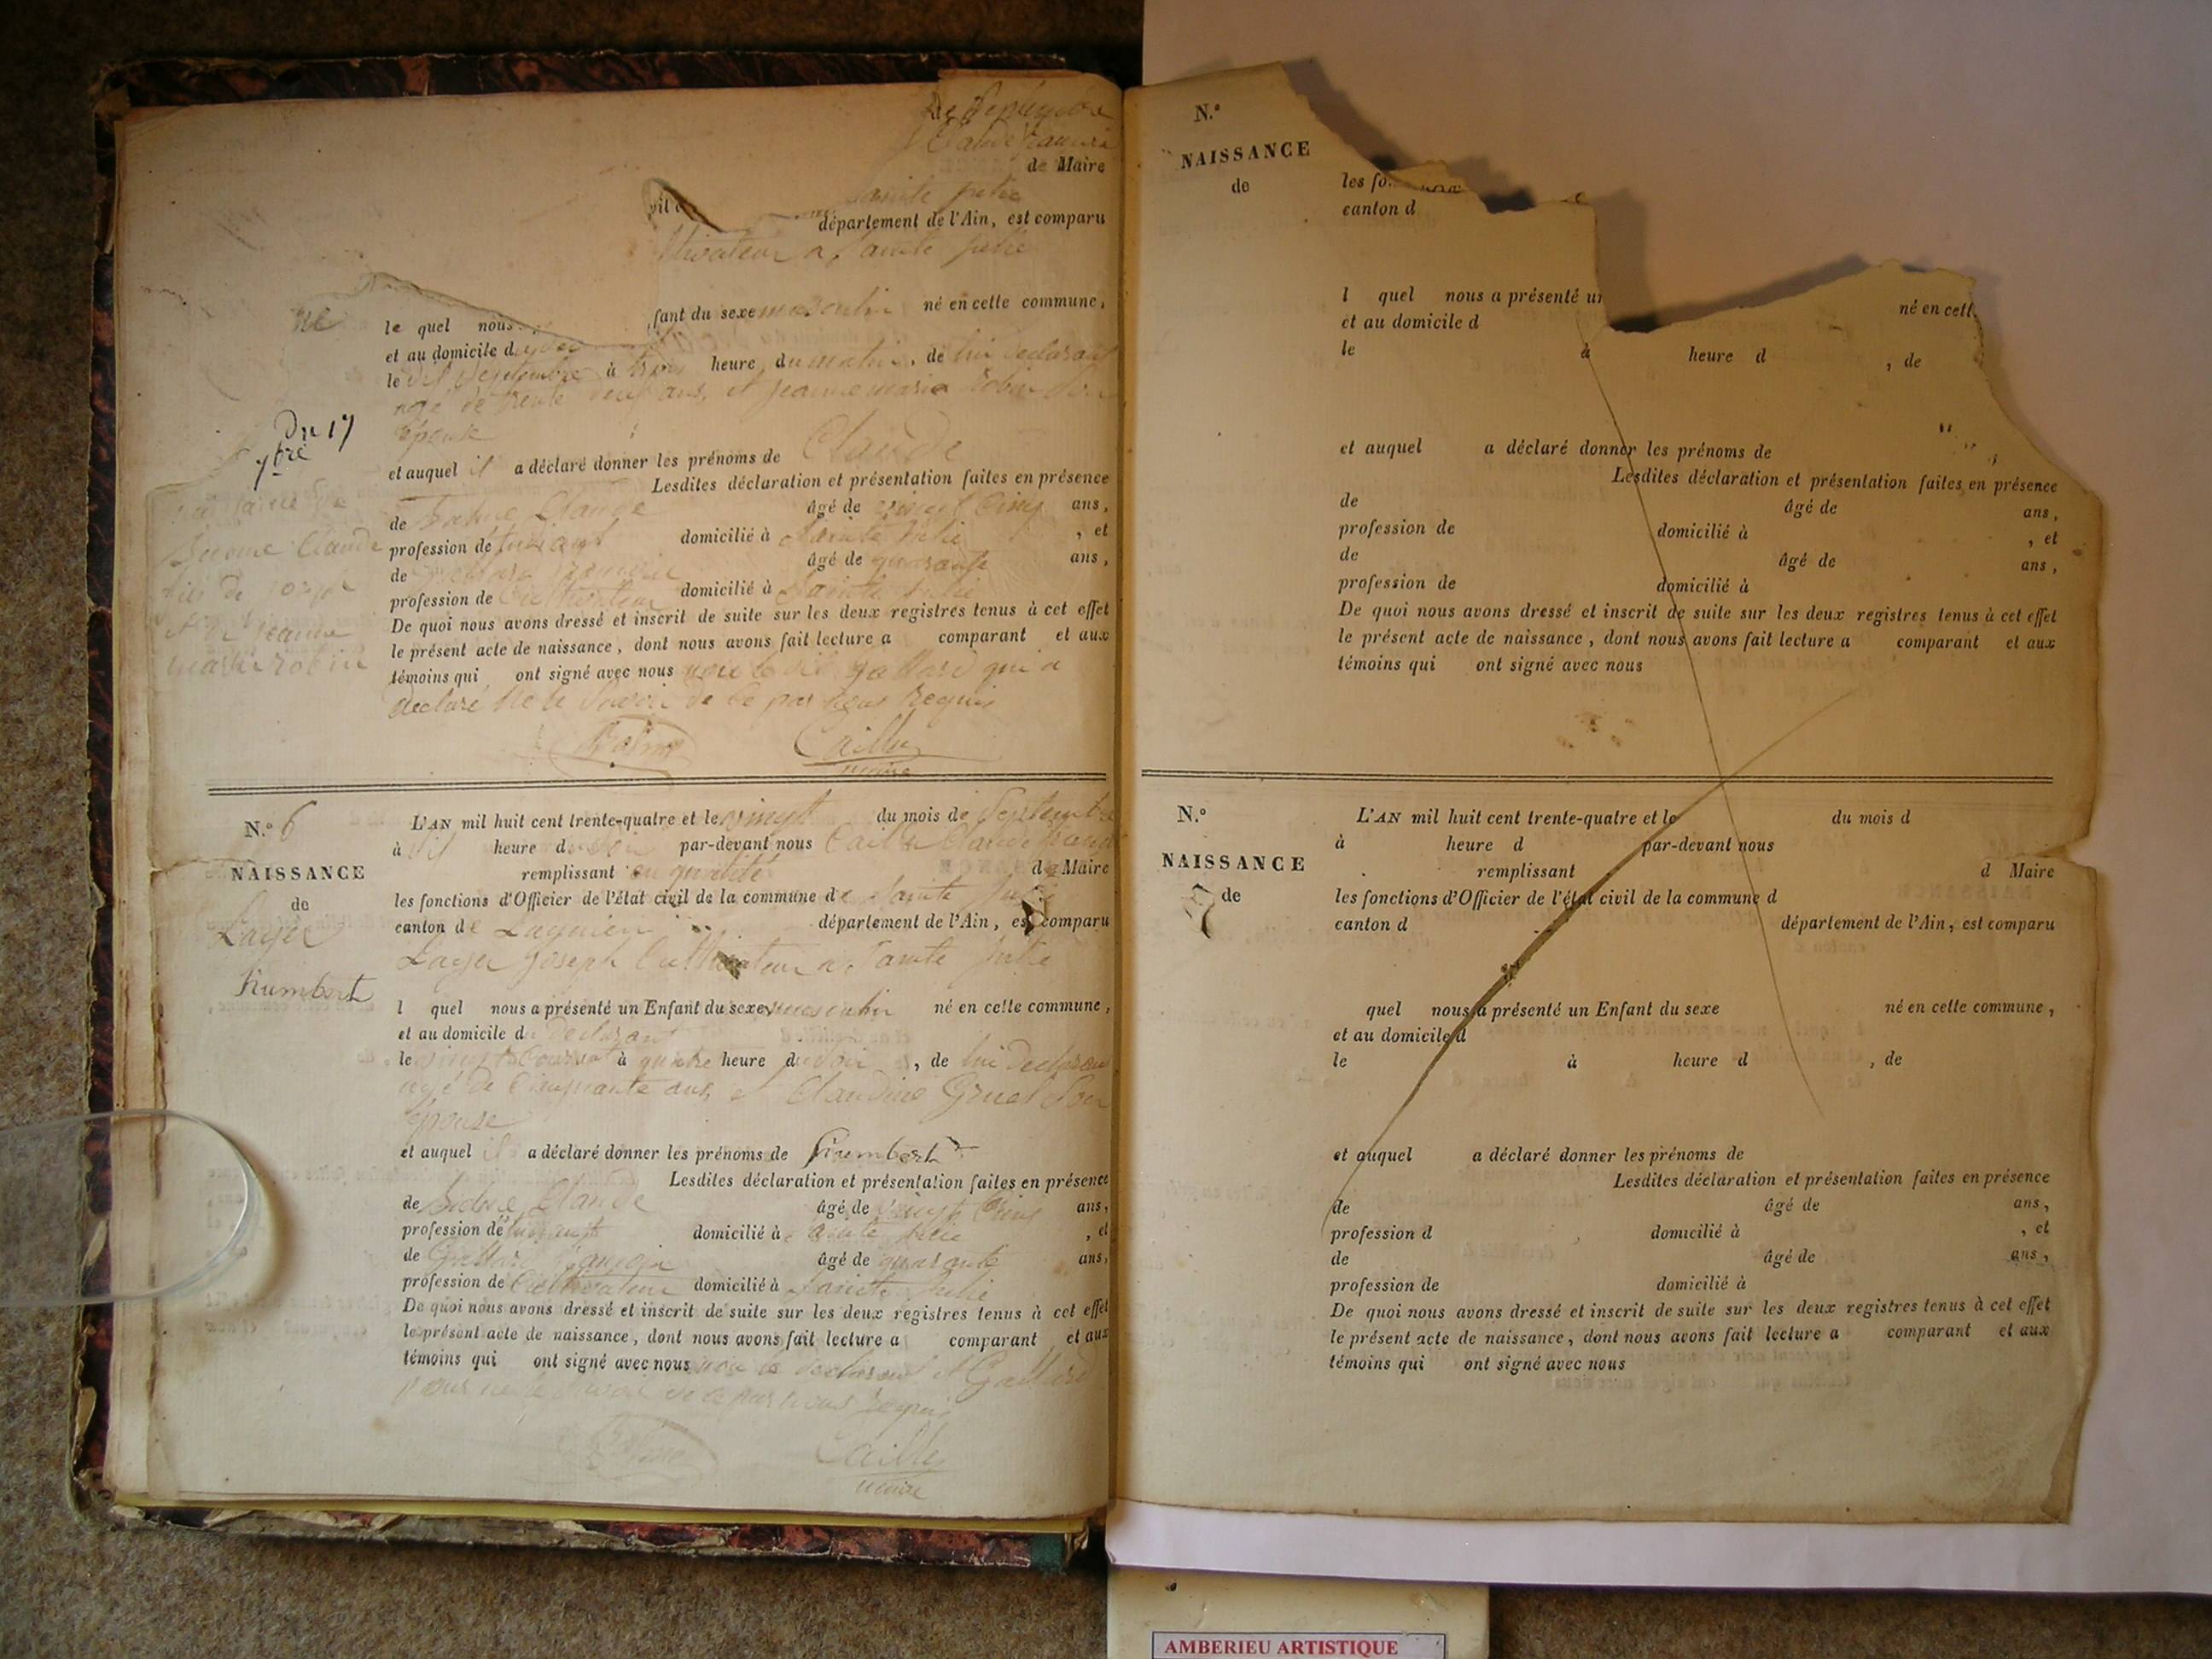 de Septembre
de Maire
Sainte Julie
département de l'Ain, est comparu
a Sainte Julie
le quel nous
fant du sexe masculin né en cette commune,
et au domicile d
le dix Septembre à trois heure du matin, de lui déclarant
agé de trente neuf ans, et jeanne marie robin Son
épouse
Du 17
7bre
et auquel il a déclaré donner les prénoms de Claude
Lesdites déclaration et présentation faites en présence
de Claude âgé de vingt Cinq ans,
profession de domicilié à Sainte Julie, et
de âgé de quarante ans,
profession de Cultivateur domicilié à Sainte Julie
Claude
fils de
jeanne
marie robin
De quoi nous avons dressé et inscrit de suite sur les deux registres tenus à cet effet
le présent acte de naissance, dont nous avons fait lecture a comparant et aux
témoins qui ont signé avec nous qui a
déclaré ne le Savoir de ce par nous requis
Caille
maire
N.º 6
NAISSANCE
de
Layer
humbert
L'AN mil huit cent trente-quatre et le vingt du mois de Septembre
à dix heure du par-devant nous Caille Claude
remplissant en qualité de Maire
les fonctions d'Officier de l'état civil de la commune de Sainte Julie
canton de Lagnieu département de l'Ain, est comparu
Layer joseph Cultivateur a Sainte Julie
l quel nous a présenté un Enfant du sexe masculin né en cette commune,
et au domicile du déclarant
le vingt Courant à quatre heure du soir, de lui déclarant
agé de Cinquante ans, et Claudine Gruel Son
épouse
et auquel il a déclaré donner les prénoms de humbert
Lesdites déclaration et présentation faites en présence
de Claude âgé de vingt Cinq ans,
profession de domicilié à Sainte Julie, et
de Gallard françois âgé de quarante ans,
profession de Cultivateur domicilié à Sainte Julie
De quoi nous avons dressé et inscrit de suite sur les deux registres tenus à cet effet
le présent acte de naissance, dont nous avons fait lecture a comparant et aux
témoins qui ont signé avec nous non le déclarant et Gallard
pour ne le Savoir de ce par nous requis
Caille
maire
N.º
NAISSANCE
de
les fo
canton d
l quel nous a présenté un
né en cett
et au domicile d
le à heure d , de
et auquel a déclaré donner les prénoms de
Lesdites déclaration et présentation faites en présence
de âgé de ans,
profession de domicilié à , et
de âgé de ans,
profession de domicilié à
De quoi nous avons dressé et inscrit de suite sur les deux registres tenus à cet effet
le présent acte de naissance, dont nous avons fait lecture a comparant et aux
témoins qui ont signé avec nous
N.º
NAISSANCE
de
L'AN mil huit cent trente-quatre et le du mois d
à heure d par-devant nous
remplissant d Maire
les fonctions d'Officier de l'état civil de la commune d
canton d département de l'Ain, est comparu
quel nous a présenté un Enfant du sexe né en cette commune,
et au domicile d
le à heure d , de
et auquel a déclaré donner les prénoms de
Lesdites déclaration et présentation faites en présence
de âgé de ans,
profession d domicilié à , et
de âgé de ans,
profession de domicilié à
De quoi nous avons dressé et inscrit de suite sur les deux registres tenus à cet effet
le présent acte de naissance, dont nous avons fait lecture a comparant et aux
témoins qui ont signé avec nous
AMBERIEU ARTISTIQUE